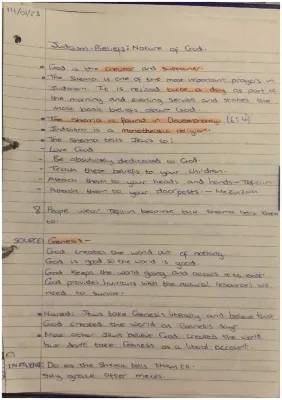 Judaism - Beliefs: Nature of God.
God is the creator and sustainer
The Shema is one of the most important prayers in
Judaism. It is recited twice a day as part of
the morning and evening service and states the
most basic beliefs about God.
The Shema is found in Deuteronomy
Judaism is a monotheistic religion.
The Shema tells Jews to:
- Love God
- Be absolutely dedicated to God.
- Teach these beliefs to your children.
- Attach them to your heads and hands - Tefillin
- Attach them to your doorposts - Mezuzah
People wear Tefillin because the Shema tells them
to.
SOURCE: Genesis -
God creates the world out of nothing
God is good so the world is good.
God keeps the world going and allows it to
God provides humans with the natural resources we
need to survive.
Jews take Genesis literally and believe that
God created the world as Genesis says
Most other Jews believe God created the world
but don't take Genesis as a literal account.
INFLUENCE: Do as the Shema tells them to.
Say grace after meals.